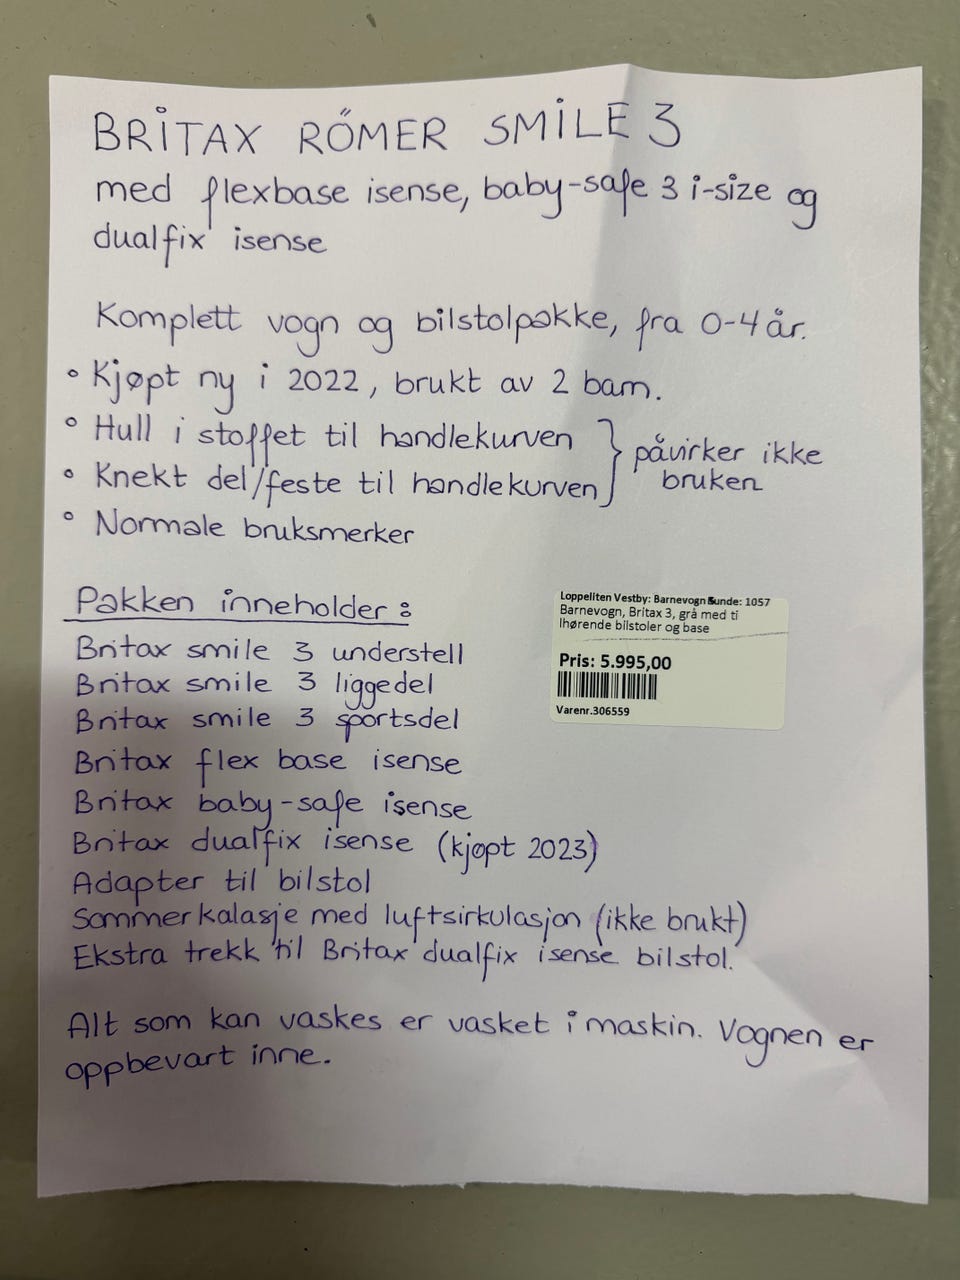 BRITAX RÖMER SMILE 3
med flexbase isense, baby-safe 3 i-size og
dualfix isense
Komplett vogn og bilstolpakke, fra 0-4 år.
• Kjøpt ny i 2022, brukt av 2 barn.
• Hull i stoffet til handlekurven
• Knekt del/feste til handlekurven
} påvirker ikke
bruken
• Normale bruksmerker
Pakken inneholder:
Britax smile 3 understell
Britax smile 3 liggedel
Britax smile 3 sportsdel
Britax flex base isense
Britax baby-safe isense
Britax dualfix isense (kjøpt 2023)
Adapter til bilstol
Sommerkalasje med luftsirkulasjon (ikke brukt)
Ekstra trekk til Britax dualfix isense bilstol.
Alt som kan vaskes er vasket i maskin. Vognen er
oppbevart inne.
Loppeliten Vestby: Barnevogn Kunde: 1057
Barnevogn, Britax 3, grå med ti
lhørende bilstoler og base
Pris: 5.995,00
Varenr.306559